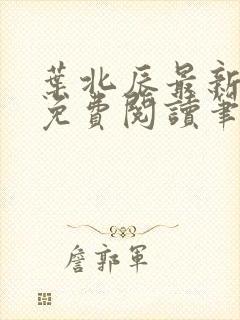 葉北辰最新
免費閱讀筆
詹郭軍